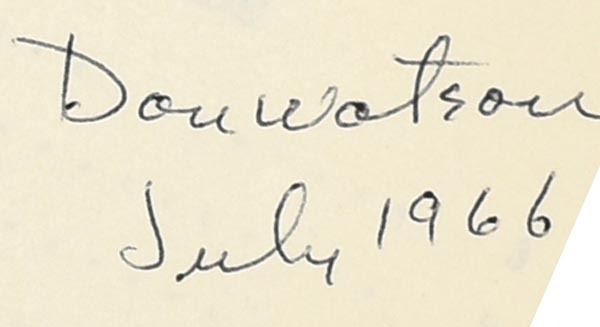 Don Watson
July 1966